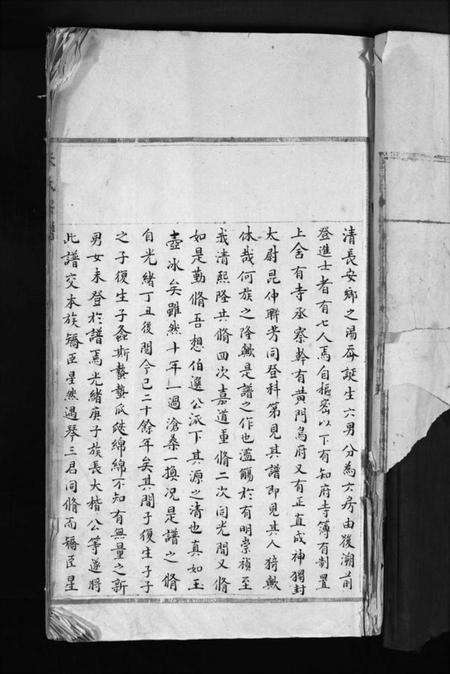 清長安鄉之湯齊誕生六男分為六房由後溯前
登進士者有七人焉自樞密以下有知府寺簿有制置
上舍有寺丞察幹有黃門烏府又有正直成神獨封
太尉昆仲聯芳同登科第見其譜即見其人猗歟
休哉何族之隆歟是譜之作也濫觴於有明崇禎至
我清熙隆共脩四次嘉道重脩二次同光間又脩
如是勤脩吾想伯遷公派下其源之清也真如玉
壺冰矣雖然十年一過滄桑一換況是譜之脩
自光緒丁丑後閱今已二十餘年矣其間子復生子子
之子復生子螽斯蟄蟄瓜瓞綿綿不知有無量之新
男女未登於譜焉光緒庚子族長大楷公等遂將
此譜交本族矯臣星然過琴三君同脩而矯臣星